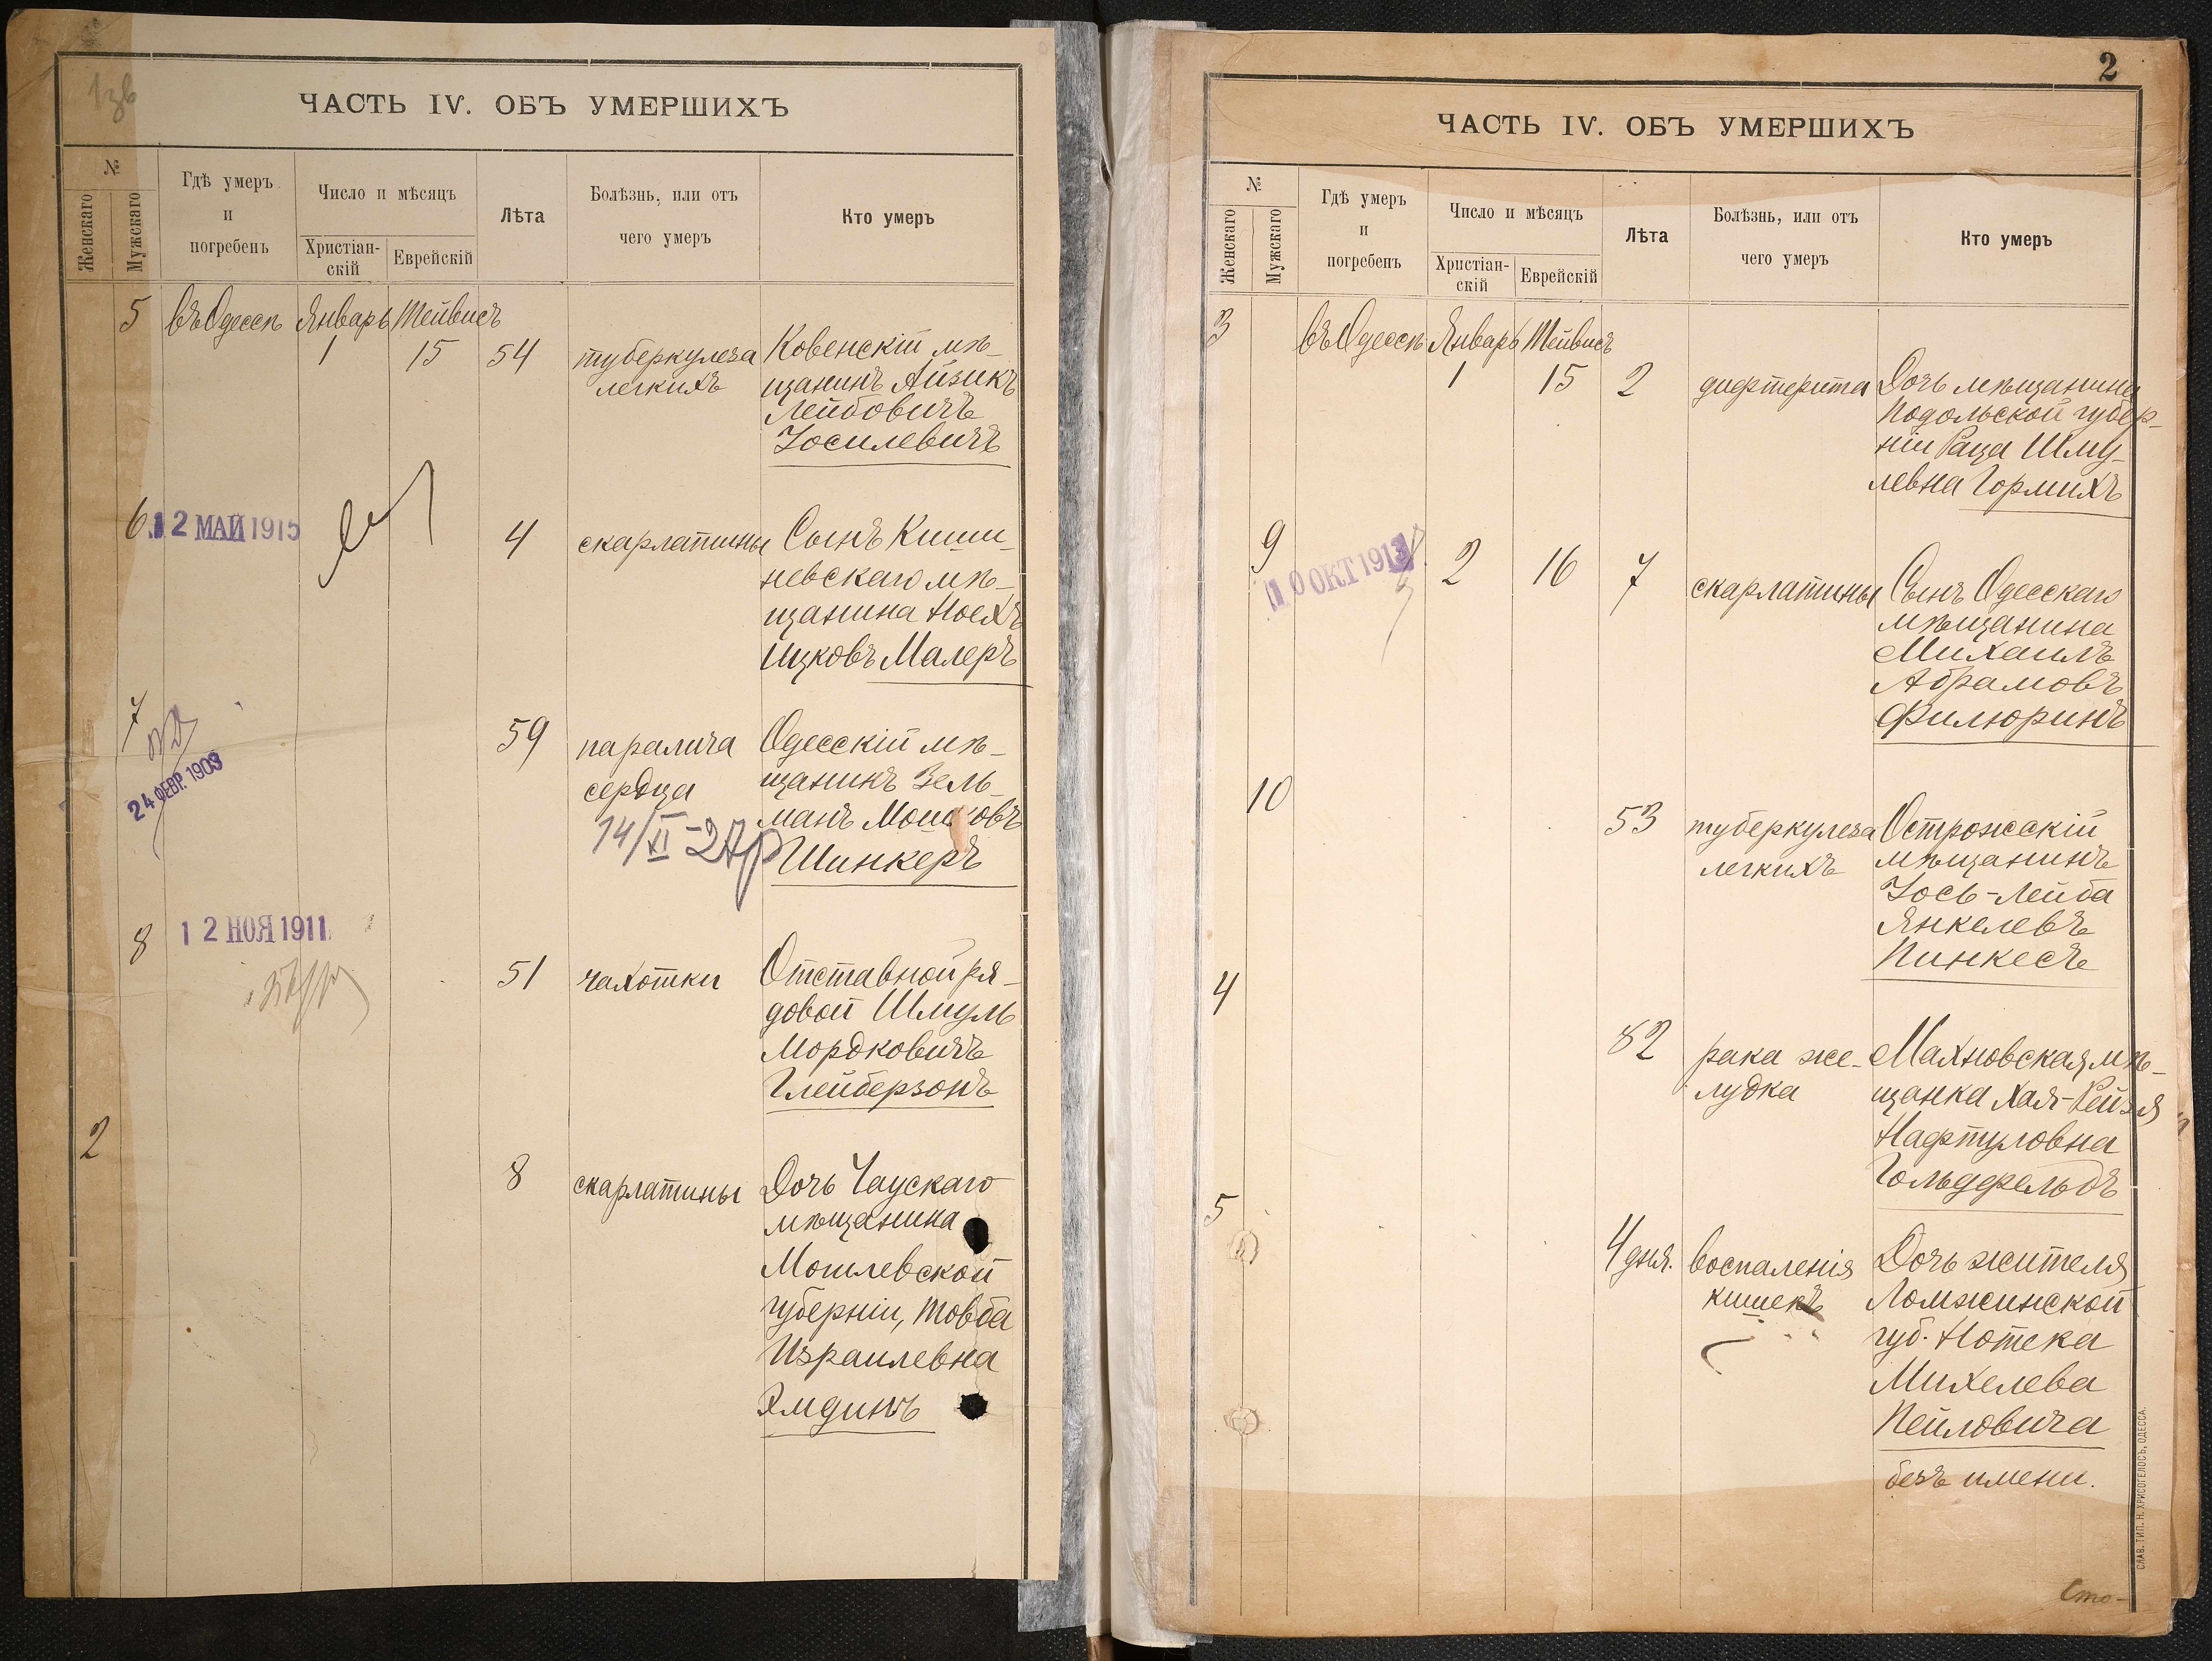 ЧАСТЬ IV. ОБЪ УМЕРШИХЪ
№
Женскаго
Мужскаго
Гдѣ умеръ
и
погребенъ
Число и мѣсяцъ
Христіан-
скій
Еврейскій
Лѣта
Болѣзнь, или отъ
чего умеръ
Кто умеръ
5 въ Одессѣ Январь Тейвисъ
1 15 54 туберкулеза Ковенскій мѣ-
легкихъ щанинъ Айзикъ
Лейбовичъ
Іосилевичъ
6 12 МАЙ 1915
4 скарлатины Сынъ Киши-
невскаго мѣ-
щанина Ноехъ
Ицковъ Малеръ
7
24 ФЕВР. 1903
59 паралича Одесскій мѣ-
сердца щанинъ Зель-
манъ Мошковъ
14/XI-27р
Шинкеръ
8 12 НОЯ 1911
51 чахотки Отставной ря-
довой Шмуль
Мордковичъ
Глейберзонъ
2
8 скарлатины Дочь Чаускаго
мѣщанина
Могилевской
губерніи, Товба
Израилевна
Эмдинъ
2
ЧАСТЬ IV. ОБЪ УМЕРШИХЪ
№
Женскаго
Мужскаго
Гдѣ умеръ
и
погребенъ
Число и мѣсяцъ
Христіан-
скій
Еврейскій
Лѣта
Болѣзнь, или отъ
чего умеръ
Кто умеръ
3 въ Одессѣ Январь Тейвисъ
1 15 2 дифтерита Дочь мѣщанина
Подольской губер-
ніи Раца Шму-
левна Гормихъ
9 10 ОКТ 1913
2 16 7 скарлатины Сынъ Одесскаго
мѣщанина
Михаилъ
Абрамовъ
Филюринъ
10
53 туберкулеза Острожскій
легкихъ мѣщанинъ
Іось-Лейба
Янкелевъ
Пинкесъ
4
82 рака же- Махновская мѣ-
лудка щанка Хая-Рейзя
Нафтуловна
Гольдфельдъ
5
4 дня. воспаленія Дочь жителя
кишекъ Ломжинской
губ. Нотека
Михелева
Пейловича
безъ имени.
Сто-
СЛАВ. ТИП. Н. ХРИСОГЕЛОСЪ, ОДЕССА.